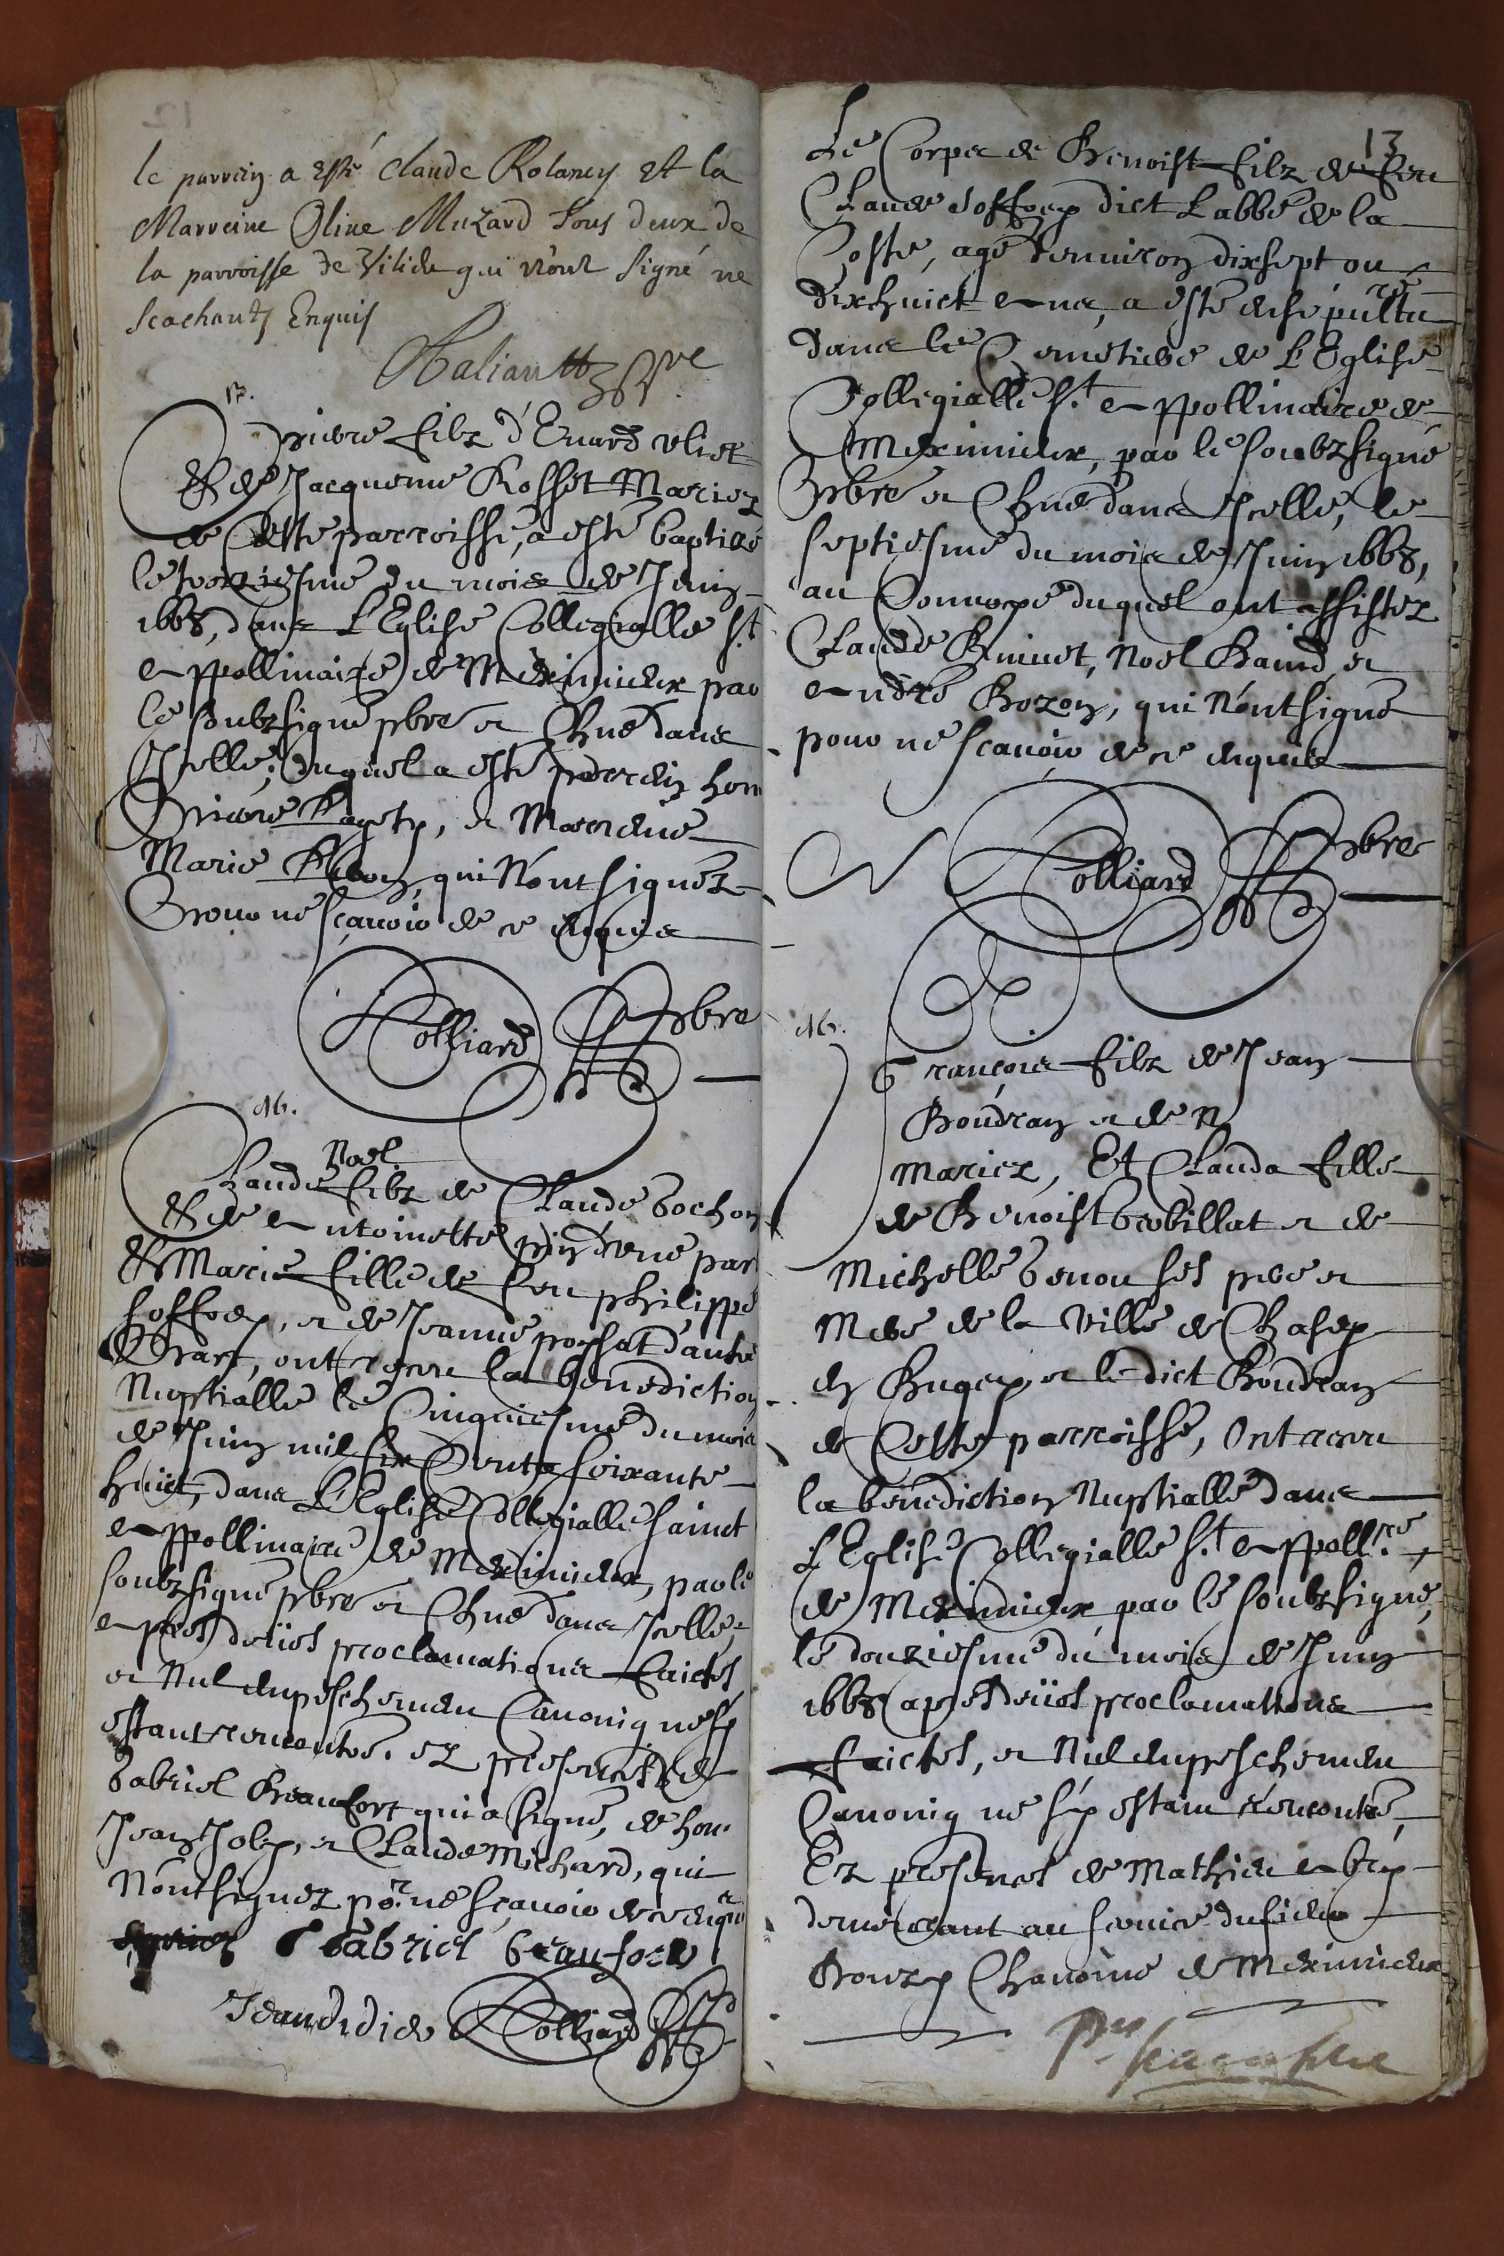 le parrein a esté Claude Rolancy et la
Marreine Oline Muzard tous deux de
la parroisse de Vilieu qui n'ont signé ne
scachantz Enquis
pbre
13.
Pierre filz d'Enard
& de Jacqueme Rosset Mariez
de Cette parroisse, a esté baptizé
le troiziesme du mois de Juin
1668, dans L'Eglise Collegialle St
Appollinaire de Meximieux par
le soubzsigné pbre et Chne dans
Icelle; duquel a esté parrein hon
Pierre Pagety, et Marreine
Marie qui N'ont signez
Pour ne sçavoir de ce enquis
Colliard Pbre
16.
Noel
Claude filz de Claude Bochon
& de Antoinette d'une part
& Marie fille de feu philippe
Soffrey, et de Jeanne possat d'autre
Part, ont receu la benediction
Nuptialle le Cinquiesme du mois
de Juin mil six Centz soixante
huict, dans L'Eglise Collegialle sainct
Appollinaire de Meximieux, par le
soubzsigné pbre et Chne dans Icelle,
Apres deües proclamations faictes
et Nul empeschement Canoniq ne sy
estant rencontré. Ez presences de
Gabriel Beaufort qui a signé, de hon.
Jean Joly, et Claude Michard, qui
N'ont signez por. ne sçavoir de ce enquis
Gabriel beaufort
Jeandidier Colliard Pb
13
Le Corps de Benoist filz de feu
Claude Soffrey dict Labbé de la
Coste, agé d'environ dixsept ou
dixhuict Ans, a esté ensépultu
ré
dans le Cemetiere de L'Eglise
Collegialle St. Appollinaire de
Meximieux, par le soubzsigné
Pbre et Chne dans Icelle, le
septiesme du mois de Juin 1668,
au Convoye duquel ont assistez
Claude Noel et
André Bozon, qui N'ont signé
pour ne sçavoir de ce enquis
Colliard Pbre
16.
François filz de Jean
Boudran et de N
Mariez, Et Clauda fille
de Benoist et de
Michelle ses pere et
Mere de la Ville de Chasey
en Bugey et le dict Boudran
de Cette parroisse, Ont receu
la benediction Nuptialle dans
L'Eglise Collegialle St. Appoll.re
de Meximieux par le soubzsigné,
le douziesme du mois de Juin
1668 apres deües proclamations
faictes, et Nul empeschement
Canoniq ne sy estant rencontré,
Ez presences de Mathieu
demeurant au service du sieur
Chanoine de Meximieux